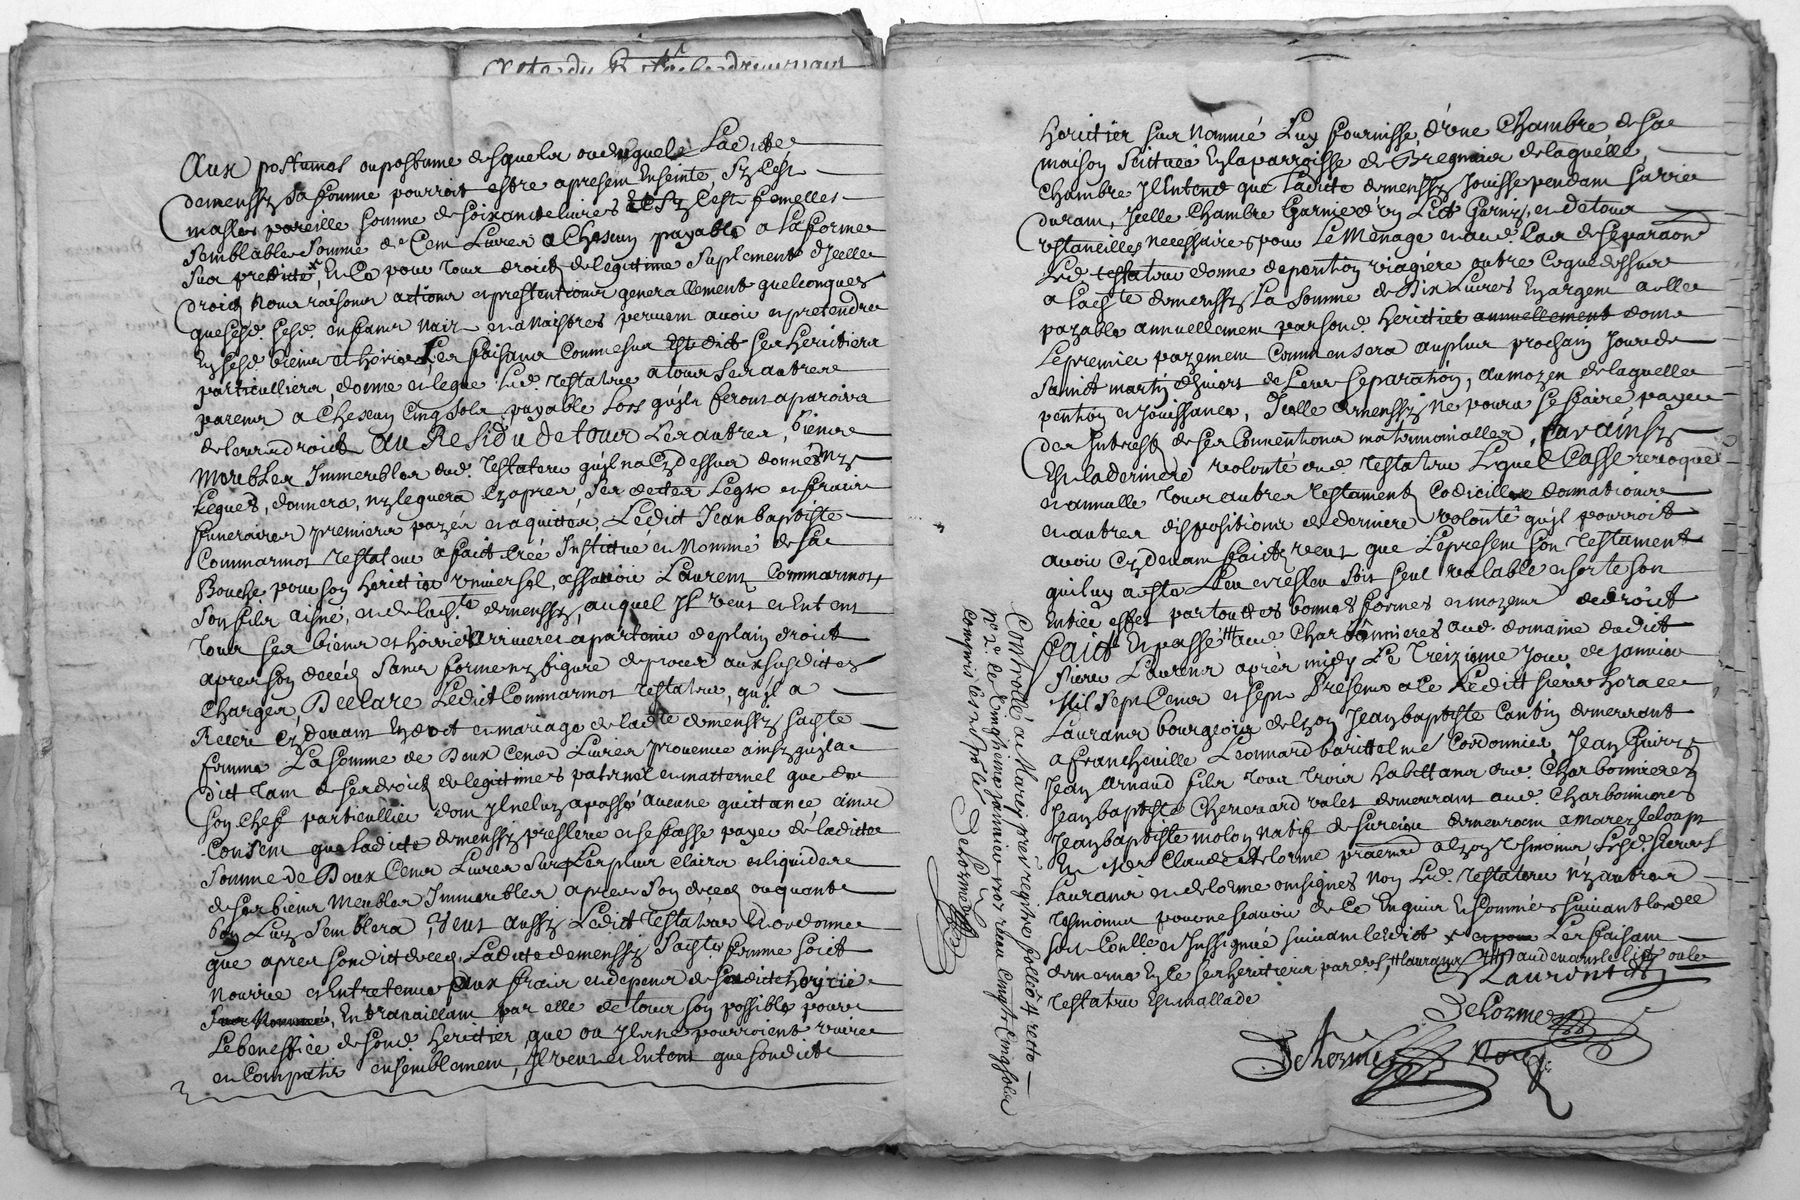 Aux postumes ou postume desquels ou duquel Ladicte
demenssy sa femme pourroit estre apresent Enseinte sy c'est
masles pareille somme de soixante livres et sy c'est femelles
semblable somme de Cent Livres a Chescun payable a la forme
sus predicte, Et Ce pour tous droicts de legittime suplement d'Icelle
droicts noms raisons actions et prestentions generallement quelconques
que sesd. enfans nais et a naistres peuvent avoir et pretendre
En sesd. biens et hoirie Les faisans Comme sus est dict ses heritiers
particulliers, donne et legue Led. Testateur a tous ses autres
parens a Chescun Cinq sols payable Lors qu'ils feront aparoir
de leurs droicts Au Residu de tous Les autres biens
Meubles Immeubles dud. Testateur qu'il n'a Cy dessus donnés ny
Legués, donnera, ny leguera Cy apres, ses dettes Legts et fraix
funeraires premiers payés et aquittés, Ledict Jean baptiste
Commarmot Testateur a faict Créé Instittué et Nommé de sa
Bouche pour son heritier universel, assavoir Laurent Commarmot,
son fils aisné, et de lad.te demenssy, auquel Il veut et Entent
Tous ses biens et hoirie arriver et apartenir de plain droict
apres son decés sans forme ny figure de procés aux susdictes
Charges, Declare Ledict Commarmot Testateur, qu'il a
Receu Cy devant En dot et mariage de ladicte demenssy sadicte
femme La somme de Deux Cens Livres provenue ainsy qu'il a
dict Tant de ses droicts de legitimes paternel et matternel que de
son Chef particullier dont Il ne luy a passé aucune quittance ains
Consent que ladicte demenssy preslève et se fasse payer de ladicte
somme de Deux Cens Livres sur Les plus clairs et liquides
de ses biens Meubles Immeubles apres son decés ou quant
bon Luy semblera, Veut aussy Ledict Testateur et ordonne
que apres son dict decés Ladicte demenssy sadicte femme soict
Nourrie et Entretenue aux fraix et depens de sadicte hoirie
En travaillant par elle de tout son possible pour
Le beneffice de sond. heritier, que ou Ils ne pourroient vivre
et Compatir ensemblement, Il veut et Entent que sondict
heritier sus Nommé Luy fournisse d'une Chambre de sa
maison scittuée En la parroisse de de laquelle
Chambre Il Entend que ladicte demenssy Jouisse pendant sa vie
durant, Icelle Chambre Garnie d'un Lict Garny, et de tous
ustancilles necessaires, pour Le Menage et aud. Cas de separaon
Led. testateur donne de pention viagiere outre Ce que dessus
a lad.te demenssy La somme de Dix Livres En argent a elle
payable annuellement par sond. heritier annuellement dont
Le premier payement Commensera au plus prochain Jour de
Sainct martin d'hivert de Leur separation, au moyen de laquelle
pention et Jouissance, Icelle demenssy ne poura se faire payer
des Interests de ses Conventions matrimonialles, Car ainsy
Est la derniere volonté dud. Testateur Lequel Casse revoque
et annulle Tous autres Testament Codicilles donnations
et autres dispositions de derniere volonté qu'il pourroit
avoir Cy devant faicts veut que Le present son Testament
qui luy a esté Leu et releu soit seul valable et sorte son
Entier effet par toutes bonnes formes et moyens de droict
faict Et passé aud. Charbonnieres aud. domaine dudict
sieur Laurans apres midy Le Treizieme Jour de Janvier
Mil sept Cens et sept Presens a Ce Ledict sieur horace
Laurans bourgeois de Lyon Jean baptiste Cantin demeurant
a francheville Leonnard Barittel me Cordonnier, Jean
Jean arnaud fils tous trois habittans aud. Charbonnieres
Jean baptiste Chenevard valet demeurant aud. Charbonnieres
Jean baptiste molon natif de demeurant a marcy le loup
Et Me Claude delorme praticien a Lyon Tesmoins Lesd. sieurs
Laurans et delorme ont signés Non Led. Testateur ny autres
Tesmoins pour ne scavoir de Ce Enquis Et sommés suivant lord.ce
soit Conlle et Inssignué suivant Ledict Les faisant
Testateur Est mallade
Laurans
Delorme
Delorme Nore
Controllé a Marcy pres registre folleo 4 recto
No 2. Ce Cinghieme janvier 1707 receu Cinq
Delorme